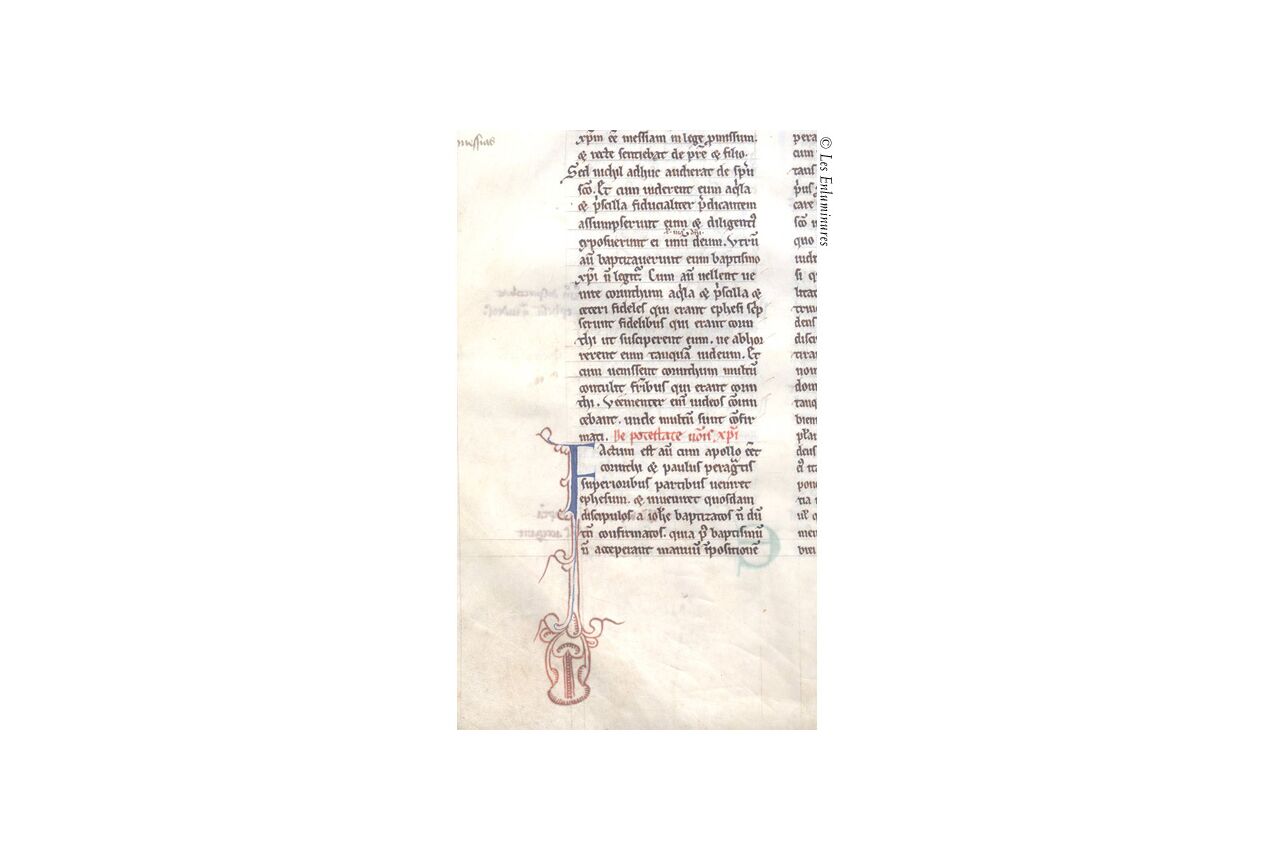 missias
xp̄m e͞e messiam in lege p̱missum.
⁊ recte sentiebat de pr̄e ⁊ filio.
Sed nichil adhuc audierat de sp̄u
sc̄o. Et cum uiderent eum aq̇la
⁊ p̓scilla fiducialiter p̄dicantem
assumpserunt eum ⁊ diligent᷒
exposuerunt ei unū deum. Vtrū
aū baptizauerunt eum baptismo
xp̄i n̄ legit᷒. Cum aū uellent ue
nire corinthum aq̇la ⁊ p̓scilla ⁊
ceteri fideles qui erant ephesi sc̄p
serunt fidelibus qui erant corin
thi ut susciperent eum. ne abhor
rerent eum tanquā iudeum. Et
cum uenissent corinthum multū
contulit fr̄ibus qui erant corin
thi. Vehementer eni᷒ iudeos conuin
cebant. unde multū sunt ꝯfir
mati. De potestate nōis xp̄i
Factum est aū cum apollo e͞et
corinthi ⁊ paulus peragᵃtis
superioribus partibus ueniret
ephesum. ⁊ inueniret quosdam
discipulos a ioh̄e baptizatos n̄ dū
tn̄ confirmatos. quia p᷒ baptismū
n̄ acceperant manuū īpositionē
pera
cum
tans
care
quo
si q
disc
nom
dom
tanq
bien
deus
pon
tia
men
© Les Enluminures